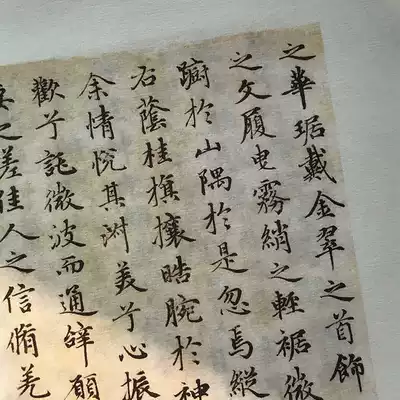 之華琚戴金翠之首飾
之文履曳霧綃之輕裾微
躕於山隅於是忽焉縱
右蔭桂旗攘皓腕於神
余情悅其淑美兮心振
歡兮託微波而通辭願
要之嗟佳人之信脩羌